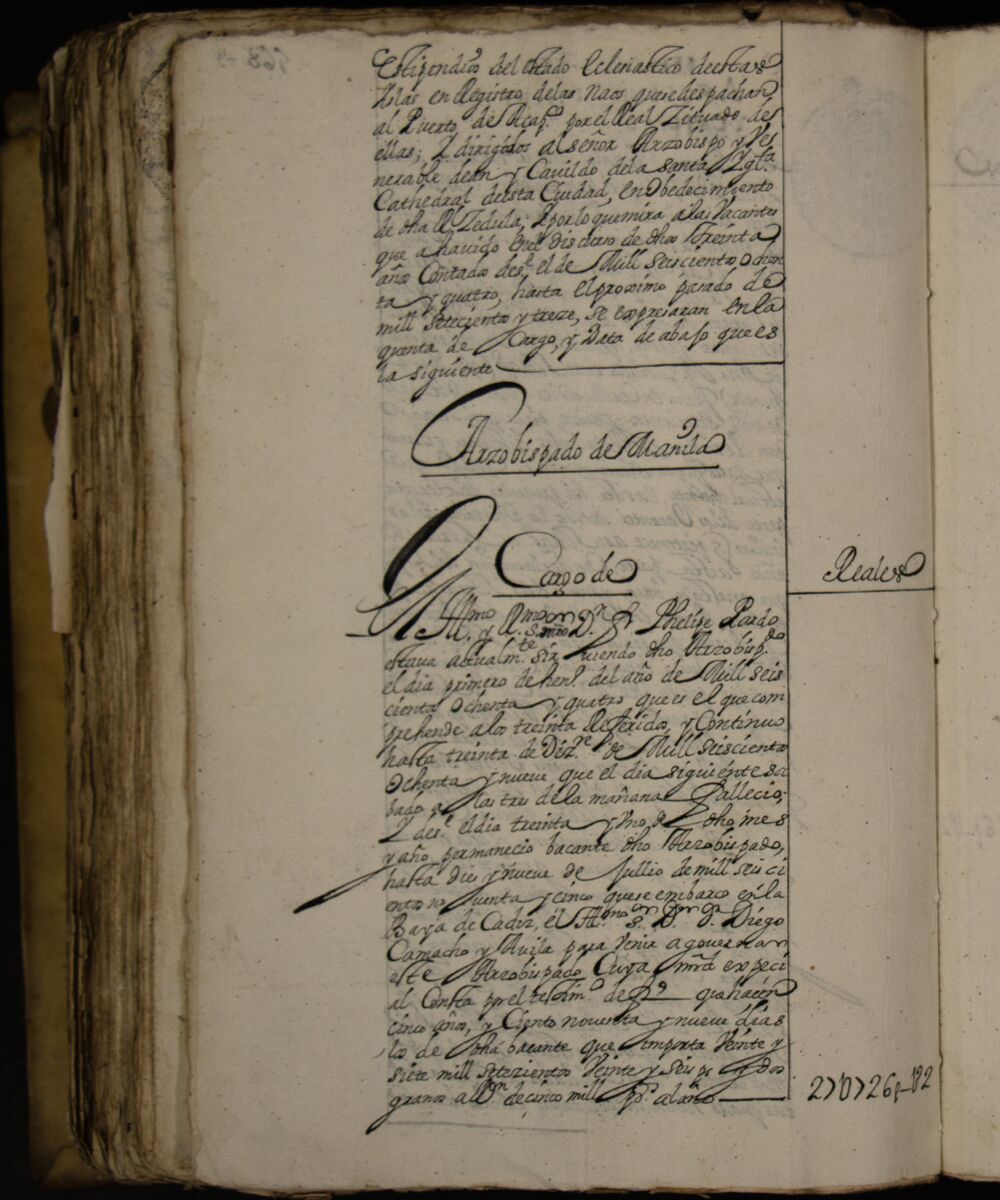 Estipendios del estado Eclesiastico de estas
Islas en Registro de las Naos que se despachan
al Puerto de Acap.co por el Real Zituado de
ellas; Y dirigidos al señor Arzobispo y Ve
nerable dean y Cavildo dela Santa Ygl.a
Cathedral de esta Ciudad, en obedecimiento
de dha Rl Zedula, Y por lo que mira a las Vacantes
que a havido en el discurso de dhos Treinta
años Contados des.e el de Mill seiscientos ochen
ta y quatro, hasta el proximo pasado de
mill setecientos y treze, se expresaran en la
quenta de Cargo, y Data de abajo que es
la siguiente
Arzobispado de Manila
Cargo de
Reales
Ill.mo y R.mo S.or mro D.n F. Phelipe Pardo
estava actualm.te sirviendo dho Arzobisp.do
el dia primero de hen.o del año de Mill seis
cientos ochenta y quatro que es el que com
prehende a los treinta Referidos, y Continuo
hasta treinta de Diz.re de Mill seiscientos
Ochenta y nueve que el dia siguiente sa
bado a las tres de la mañana fallecio;
Y des.e el dia treinta y Uno de dho mes
y año permanecio bacante dho Arzobispado,
hasta dies y nueve de Jullio de mill seis ci
entos noventa y cinco que se embarco en la
Baya de Cadiz, el Ill.mo S.or D.or D. Diego
Camacho y Avila para Venir a governar
este Arzobispado Cuya mrd expeci
al Consta p.r el testim.o de f.o que hacen
cinco años, y Ciento noventa y nueve dias
los de dha bacante que ymporta Veinte y
siete mill setezientos Veinte y seis p.s y dos
granos a Rn de cinco mill p.s al año
27U726p-"2